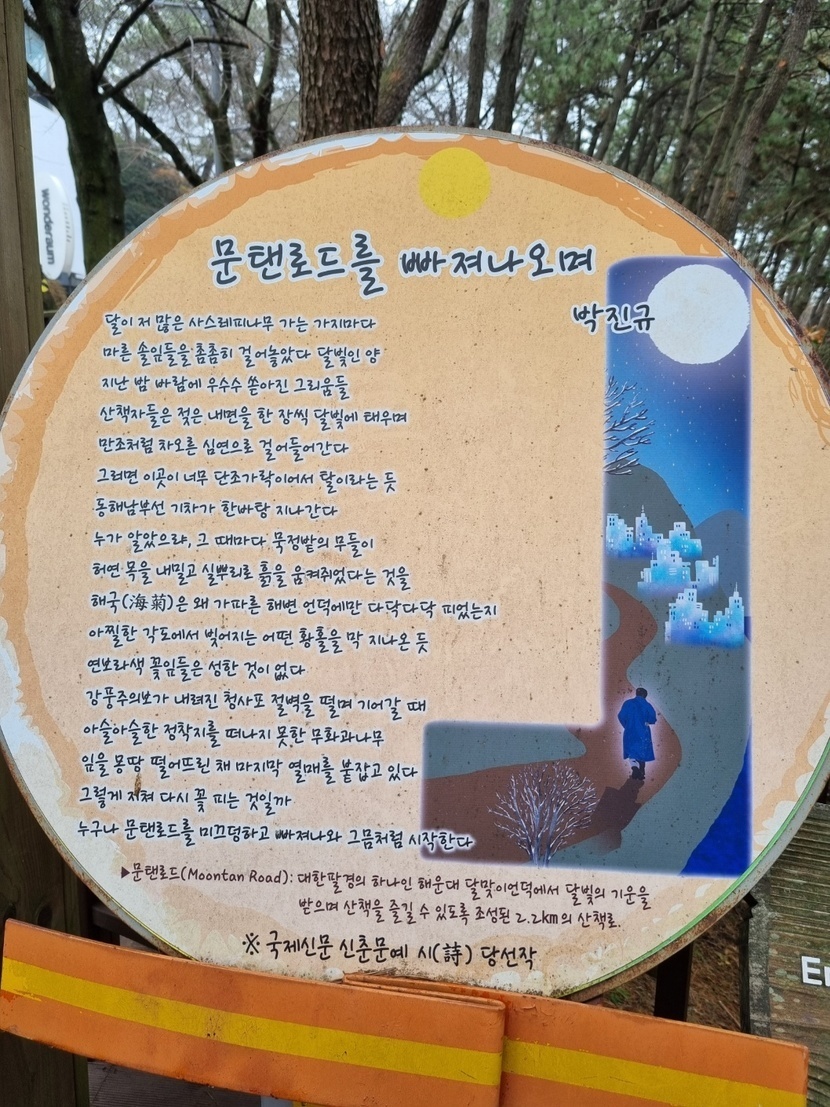 wonderaum
문탠로드를 빠져나오며
박진규
달이 저 많은 사스레피나무 가는 가지마다
마른 솔잎들을 촘촘히 걸어놓았다 달빛인 양
지난 밤 바람에 우수수 쏟아진 그리움들
산책자들은 젖은 내면을 한 장씩 달빛에 태우며
만조처럼 차오른 심연으로 걸어들어간다
그러면 이곳이 너무 단조가락이어서 탈이라는 듯
동해남부선 기차가 한바탕 지나간다
누가 알았으랴, 그 때마다 묵정밭의 무들이
허연 목을 내밀고 실뿌리로 흙을 움켜쥐었다는 것을
해국(海菊)은 왜 가파른 해변 언덕에만 다닥다닥 피었는지
아찔한 각도에서 빚어지는 어떤 황홀을 막 지나온 듯
연보라색 꽃잎들은 성한 것이 없다
강풍주의보가 내려진 청사포 절벽을 떨며 기어갈 때
아슬아슬한 정착지를 떠나지 못한 무화과나무
잎을 몽땅 떨어뜨린 채 마지막 열매를 붙잡고 있다
그렇게 지쳐 다시 꽃 피는 것일까
누구나 문탠로드를 미끄덩하고 빠져나와 그믐처럼 시작한다
▶문탠로드(Moontan Road): 대한팔경의 하나인 해운대 달맞이언덕에서 달빛의 기운을
받으며 산책을 즐길 수 있도록 조성된 2.2km의 산책로.
※ 국제신문 신춘문예 시(詩) 당선작